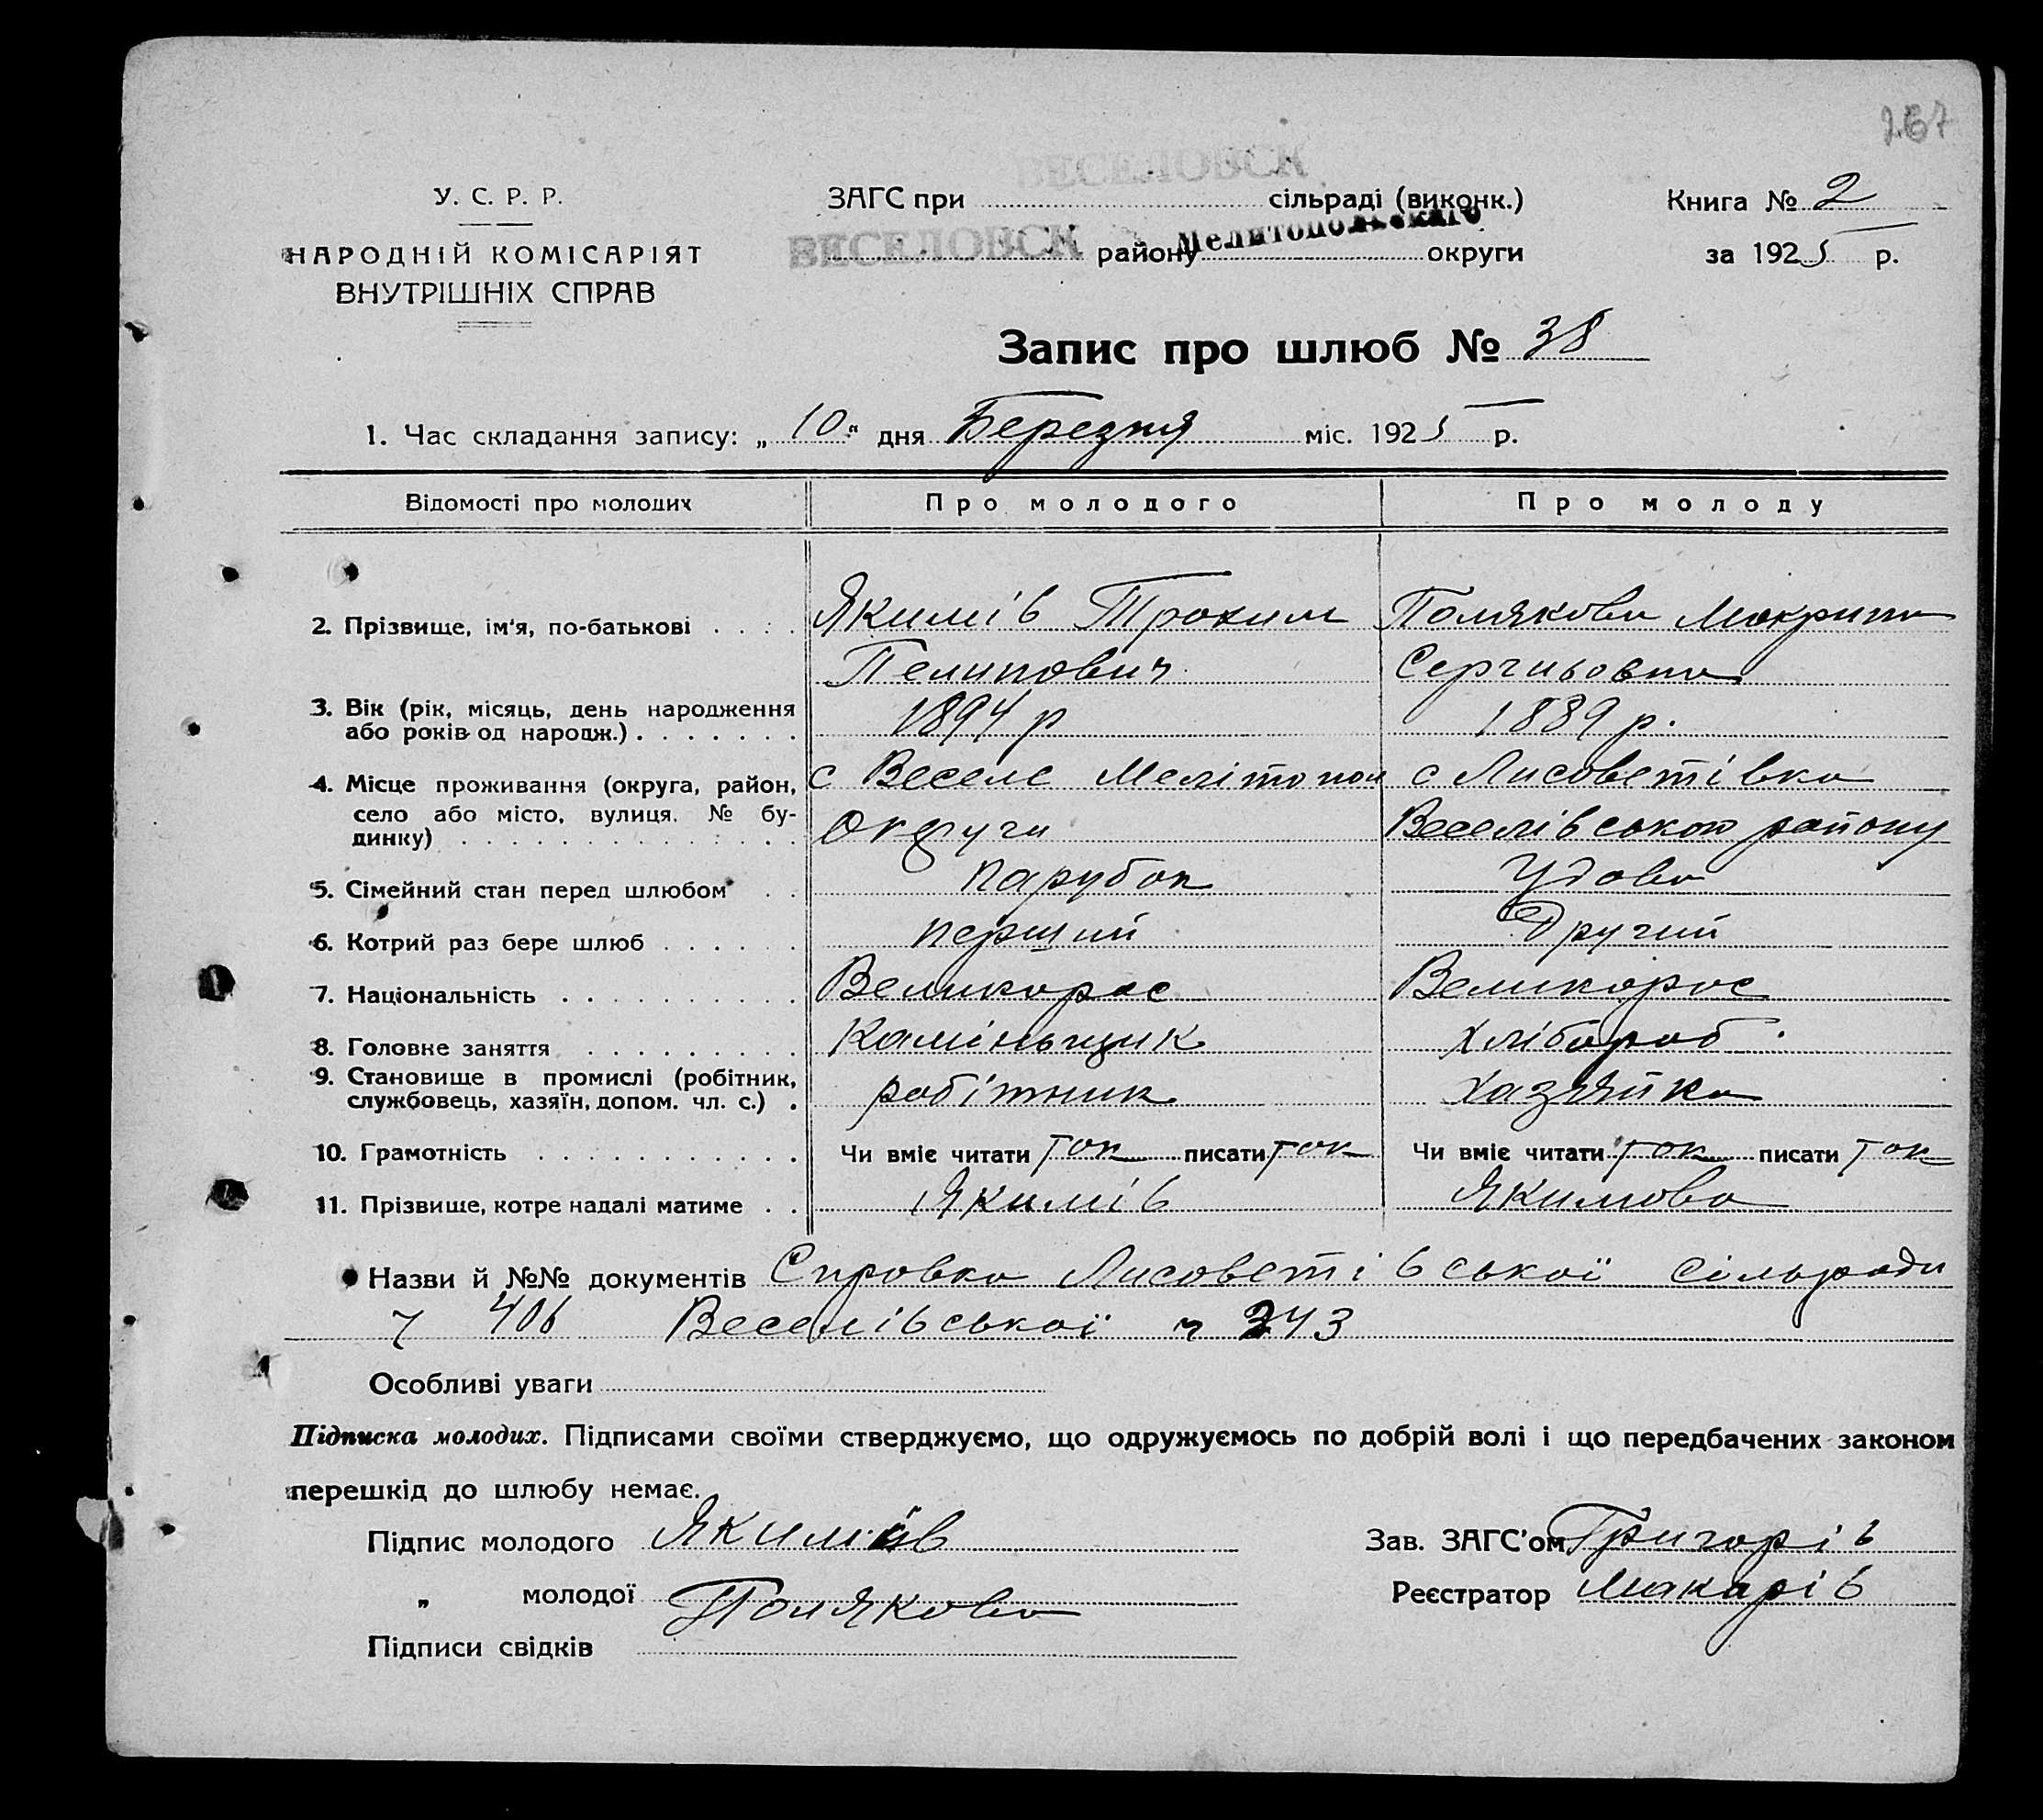 267
ВЕСЕЛОВСК
У. С. Р. Р.
ЗАГС при сільраді (виконк.)
Книга № 2
НАРОДНІЙ КОМІСАРІЯТ
ВНУТРІШНІХ СПРАВ
ВЕСЕЛОВСК району Мелитопольскаго округи
за 1925 р.
Запис про шлюб № 38
1. Час складання запису: „10“ дня Березня міс. 1925 р.
Відомості про молодих Про молодого Про молоду
2. Прізвище, ім'я, по-батькові Якимів Трохим Полякова Макрина
Пелипович Сергиьовна
3. Вік (рік, місяць, день народження
або років од народж.) 1894 р 1889 р.
4. Місце проживання (округа, район, с Веселе Мелітопол с Лисоветівка
село або місто, вулиця, № бу-
динку) Округи Веселівського району
5. Сімейний стан перед шлюбом парубок Удова
6. Котрий раз бере шлюб перший Другий
7. Національність Великорос Великорос
8. Головне заняття Каміньщик хлібороб
9. Становище в промислі (робітник,
службовець, хазяїн, допом. чл. с.) робітник хазяйка
10. Грамотність Чи вміє читати так писати так Чи вміє читати так писати так
11. Прізвище, котре надалі матиме Якимів Якимова
Назви й №№ документів Справка Лисоветівської сільради
ч 406 Веселівської ч 343
Особливі уваги
Підписка молодих. Підписами своїми стверджуємо, що одружуємось по добрій волі і що передбачених законом
перешкід до шлюбу немає.
Підпис молодого Якимів Зав. ЗАГС'ом Григорів
„ молодої Полякова Реєстратор Макарів
Підписи свідків